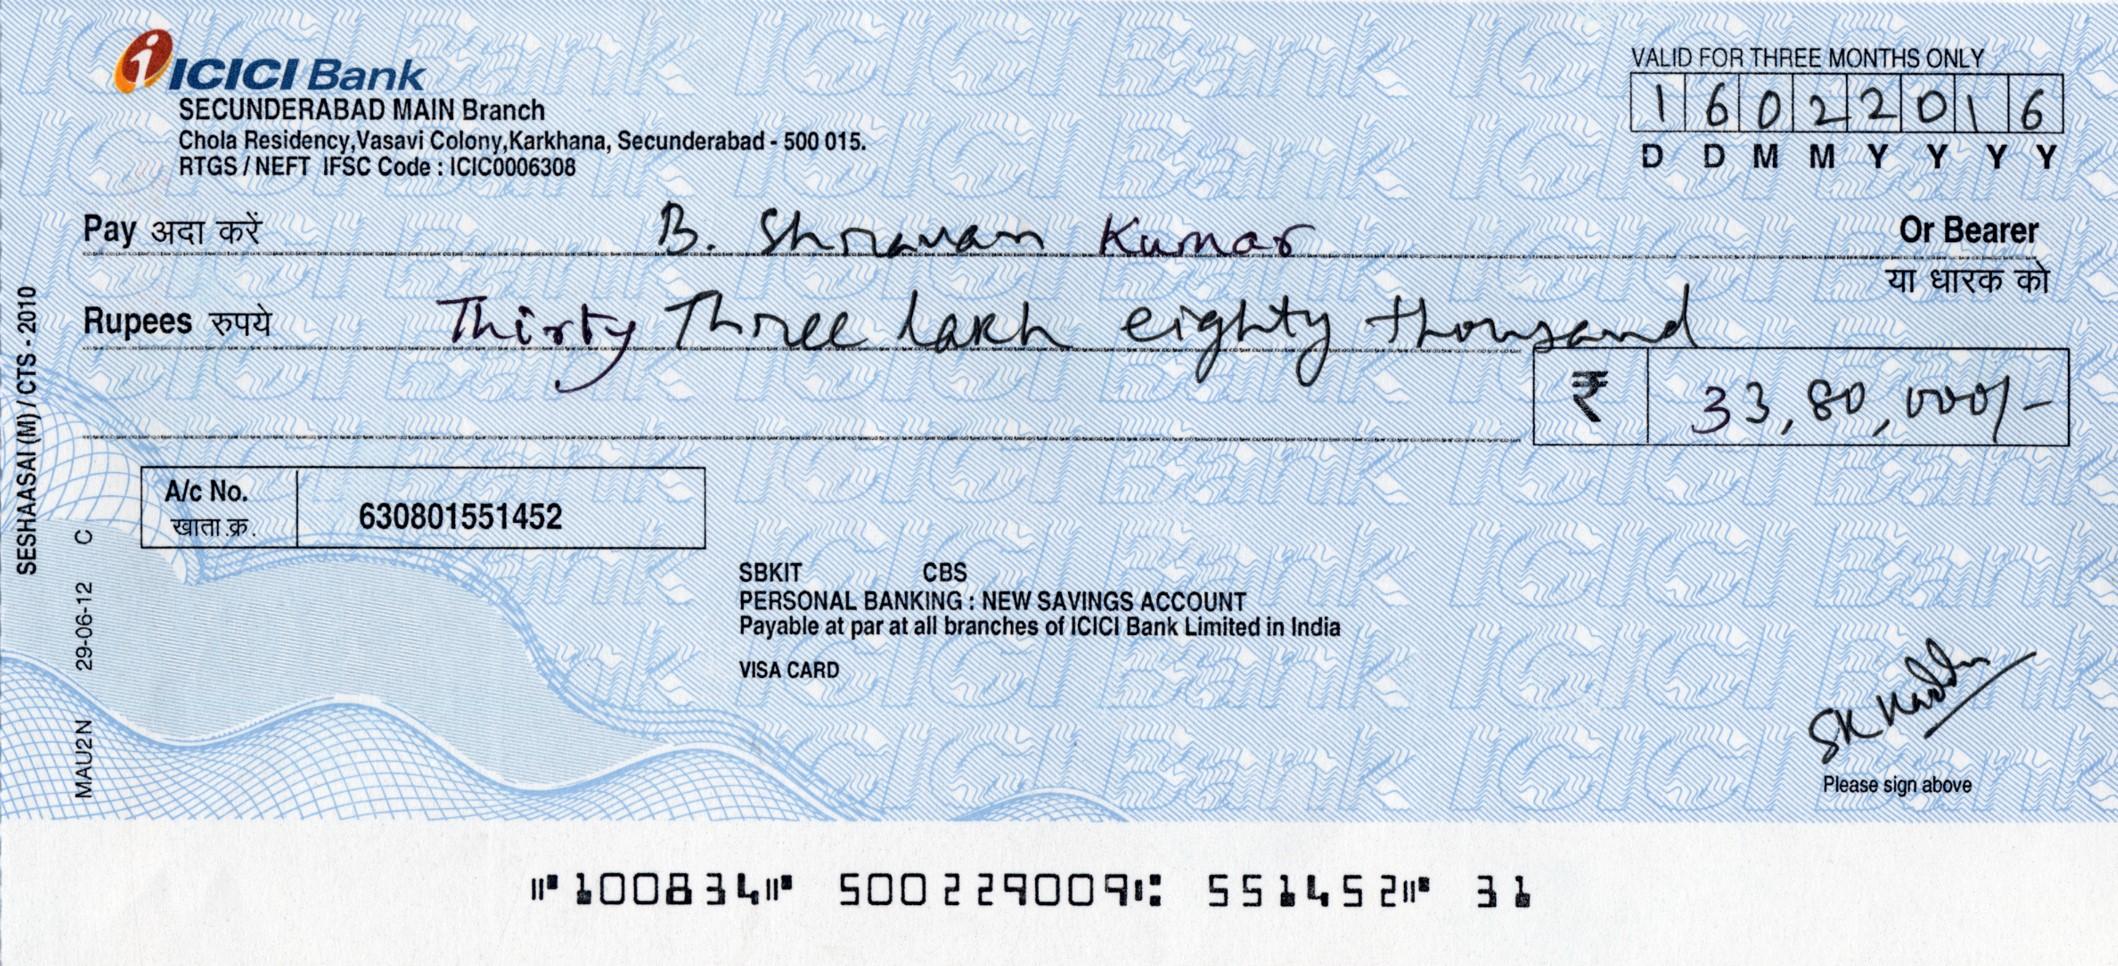 ICICI Bank
SECUNDERABAD MAIN Branch
Chola Residency,Vasavi Colony,Karkhana, Secunderabad - 500 015.
RTGS / NEFT IFSC Code : ICIC0006308
VALID FOR THREE MONTHS ONLY
1 6 0 2 2 0 1 6
D D M M Y Y Y Y
Pay अदा करें B. Shravan Kumar Or Bearer
या धारक को
Rupees रुपये Thirty Three lakh eighty thousand
₹ 33,80,000/-
A/c No. 630801551452
खाता.क्र.
SBKIT CBS
PERSONAL BANKING : NEW SAVINGS ACCOUNT
Payable at par at all branches of ICICI Bank Limited in India
VISA CARD
Please sign above
SESHAASAI (M) / CTS - 2010
MAU2N 29-06-12 C
⑈100834⑈ 500229009⑆ 551452⑈ 31